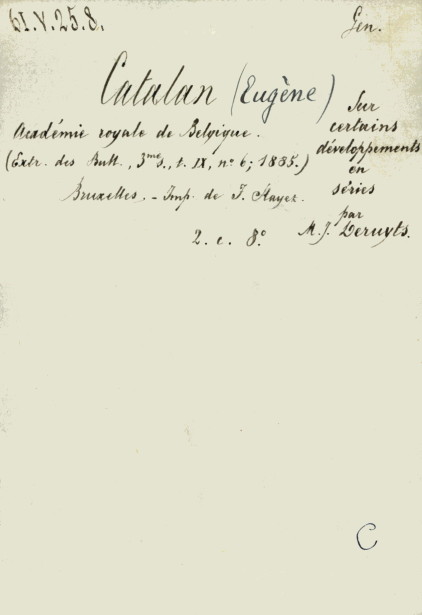 61.V.25.8.
Gin.
Catalan (Eugène)
Académie royale de Belgique.
(Extr. des Bull., 3me s., t. IX, no 6; 1885.)
Bruxelles. - Imp. de F. Hayez.
2. c. 8.o
Sur
certains
développements
en
séries
par
M. J. Deruyts.
C